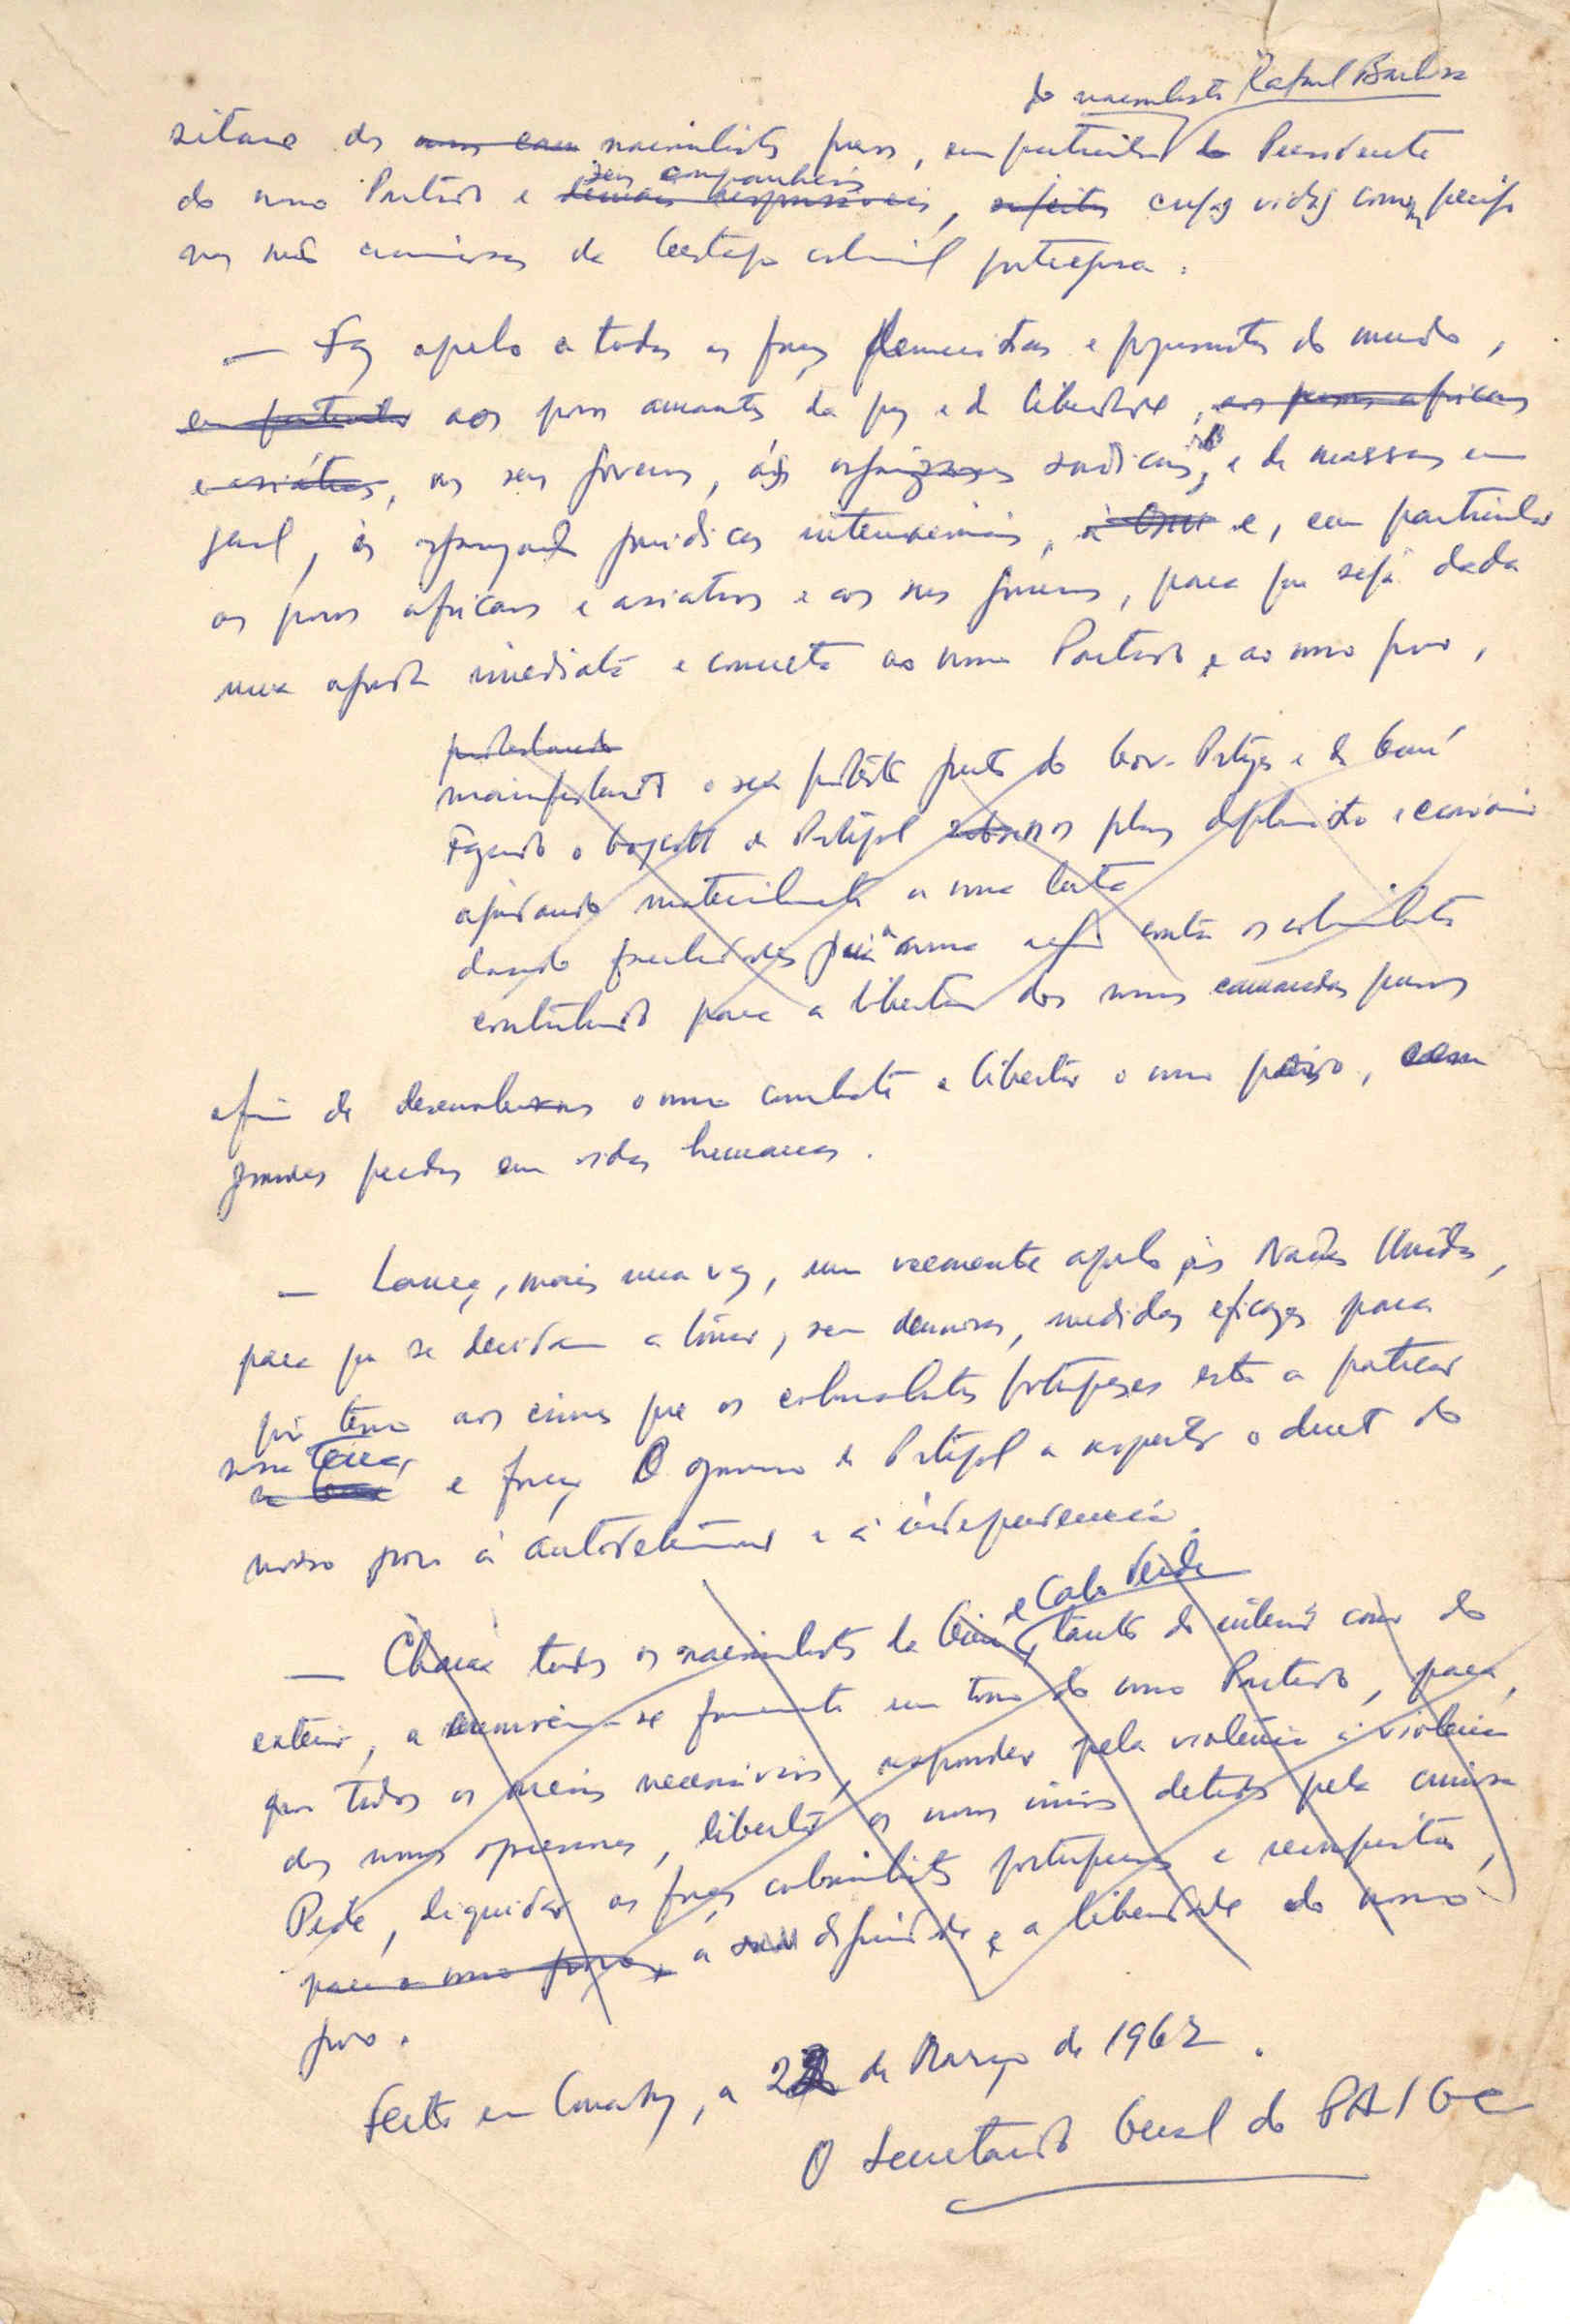 do nacionalista Rafael Barbosa
sitano dos nacionalistas presos, em particular do Presidente
do nosso Partido e seus companheiros demais responsáveis, sujeitos cujas vidas correm perigo
nas mãos criminosas da Gestapo colonial portuguesa.
— Faz apelo a todas as forças democráticas e progressistas do mundo,
em particular aos povos amantes da paz e da liberdade, aos povos africanos
e asiáticos, aos seus governos, às organizações sindicais, e de massas em
geral, às organizações jurídicas internacionais, à ONU e, em particular
aos povos africanos e asiáticos e aos seus governos, para que seja dada
uma ajuda imediata e concreta ao nosso Partido e ao nosso povo,
protestando
manifestando o seu protesto junto do Gov. Portugês e da Guiné
Fazendo o boycott de Portugal nos planos diplomático e económico
ajudando materialmente a nossa luta
dando facilidades para a nossa acção contra os colonialistas
contribuindo para a libertação dos nossos camaradas presos
a fim de desenvolvermos o nosso combate e libertar o nosso povo, sem
grandes perdas em vidas humanas.
— Lança, mais uma vez, um veemente apelo às Nações Unidas,
para que se decidam a tomar, sem demoras, medidas eficazes para
pôr termo aos crimes que os colonialistas portugueses estão a praticar
na nossa terra, e forçar o governo de Portugal a respeitar o direito do
nosso povo à autodeterminação e à independência.
e Cabo Verde
— Chama todos os nacionalistas da Guiné, tanto do interior como do
exterior, a unirem-se firmemente em torno do nosso Partido, para,
por todos os meios necessários, responder pela violência à violência
dos nossos opressores, libertar os nossos irmãos detidos pela criminosa
Pide, liquidar as forças colonialistas portuguesas e reconquistar,
para o nosso povo, a dignidade e a liberdade do nosso
povo.
Feito em Conakry, a 22 de Março de 1962.
O Secretariado Geral do PAIGC